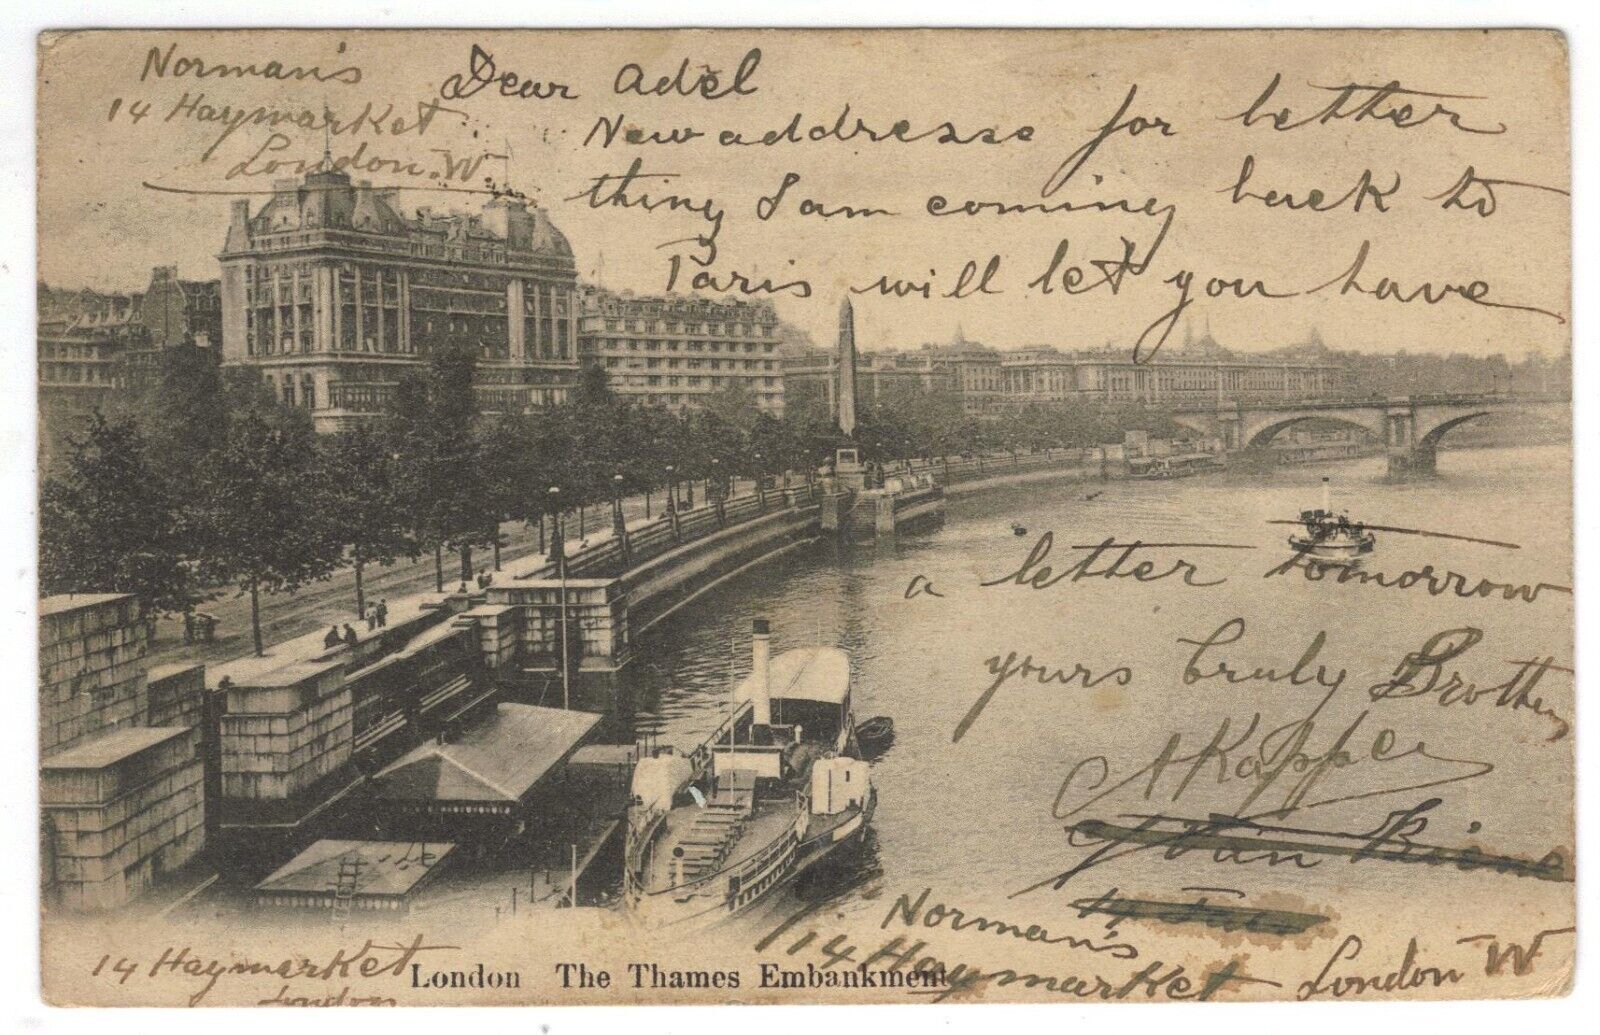 Norman's
14 Haymarket
London. W.
Dear Adel
New addresse for better
thing I am coming back to
Paris will let you have
a letter tomorrow
yours truly Brother
A Kapper
Van Biene
14
Norman's
14 Haymarket London W
14 Haymarket
London
London The Thames Embankment